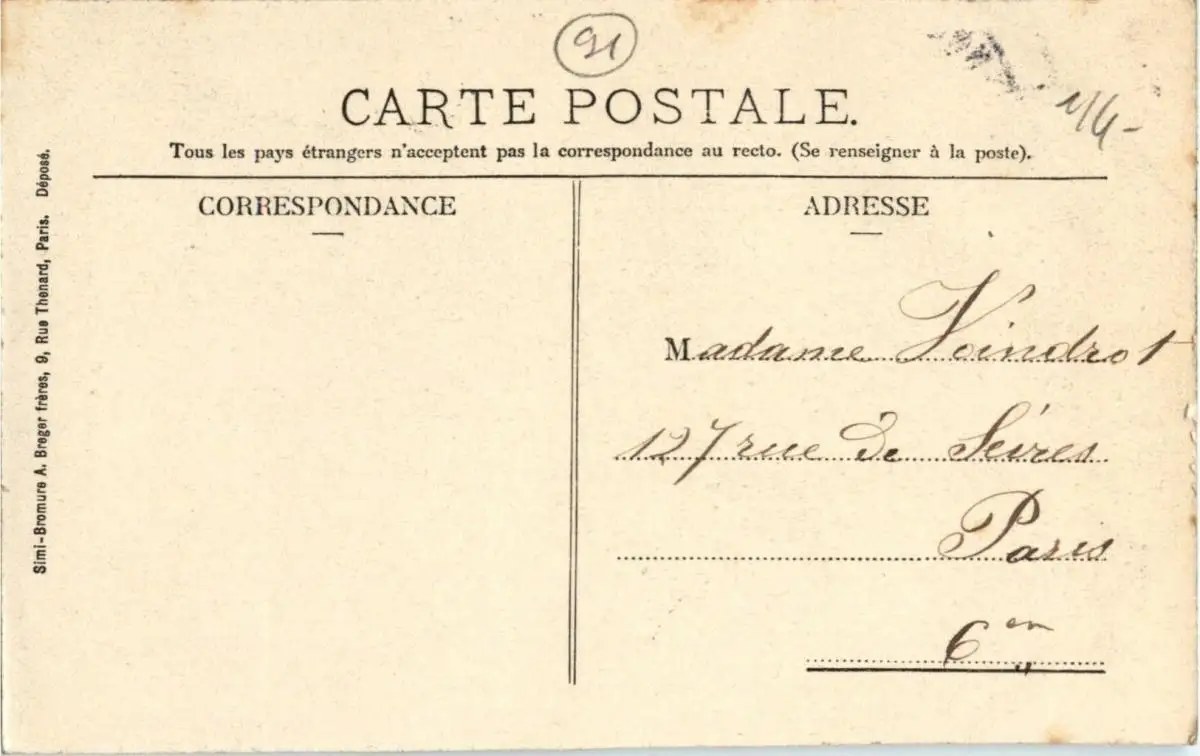 91
CARTE POSTALE.
Tous les pays étrangers n'acceptent pas la correspondance au recto. (Se renseigner à la poste).
CORRESPONDANCE
ADRESSE
Madame Voindrot
127 rue de Sèvres
Paris
6 em
Simi-Bromure A. Breger frères, 9, Rue Thenard, Paris. Déposé.